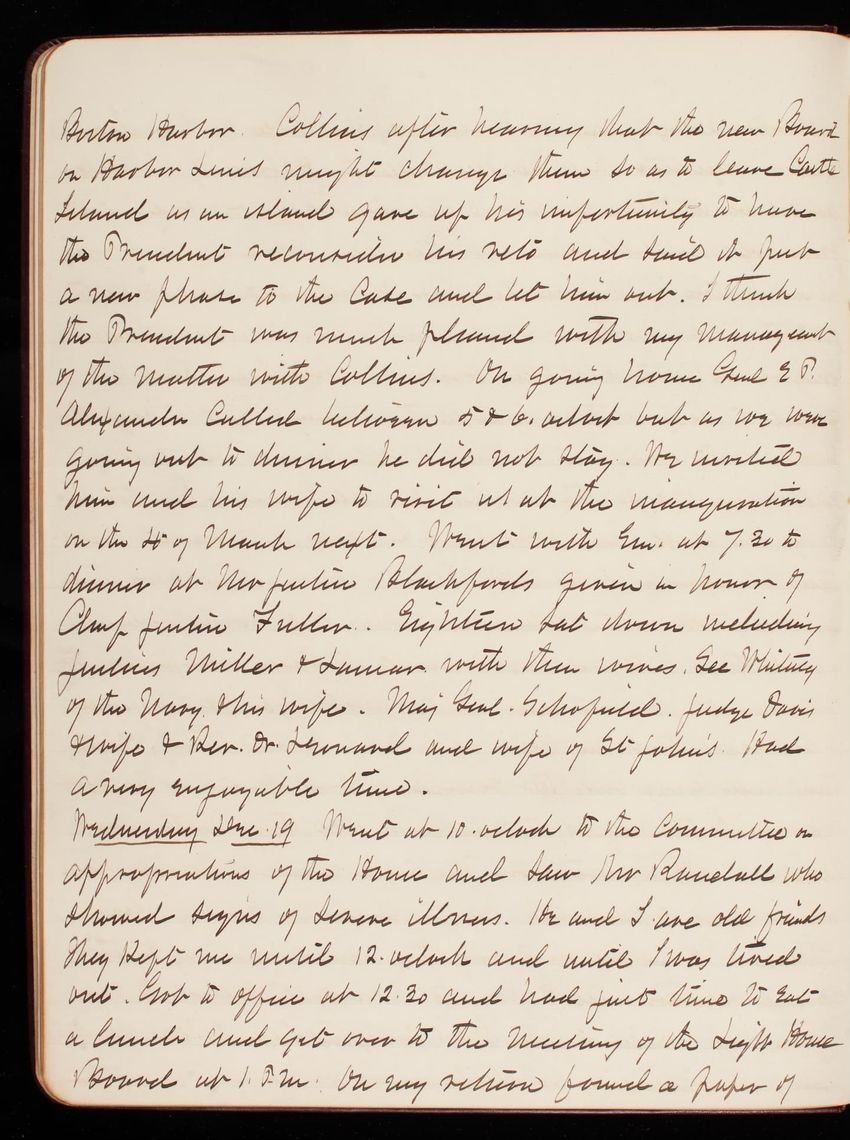 Boston Harbor. Collins after hearing that the new Board
on Harbor Lines might change them so as to leave Castle
Island as an island gave up his importunity to have
the President reconsider his veto and said it put
a new phase to the Case and let him out. I think
the President was much pleased with my management
of the matter with Collins. On going home Genl E P.
Alexander Called between 5 & 6. oclock but as we were
going out to dinner he did not stay. We invited
him and his wife to visit us at the inauguration
on the 4th of March next. Went with Em. at 7.30 to
dinner at Mr Justice Blatchfords given in honor of
Chief Justice Fuller. Eighteen sat down including
Justices Miller & Lamar with their wives. Sec Whitney
of the Navy & his wife. Maj Genl. Schofield. Judge Davis
& wife & Rev. Dr. Leonard and wife of St John's. Had
a very enjoyable time.
Wednesday Dec. 19 Went at 10. oclock to the Committee on
appropriations of the House and saw Mr Randall who
showed signs of severe illness. He and I are old friends
They Kept me until 12. oclock and until I was tired
out. Got to office at 12.30 and had just time to eat
a lunch and get over to the Meeting of the Light House
Board at 1. P.m. On my return found a paper of